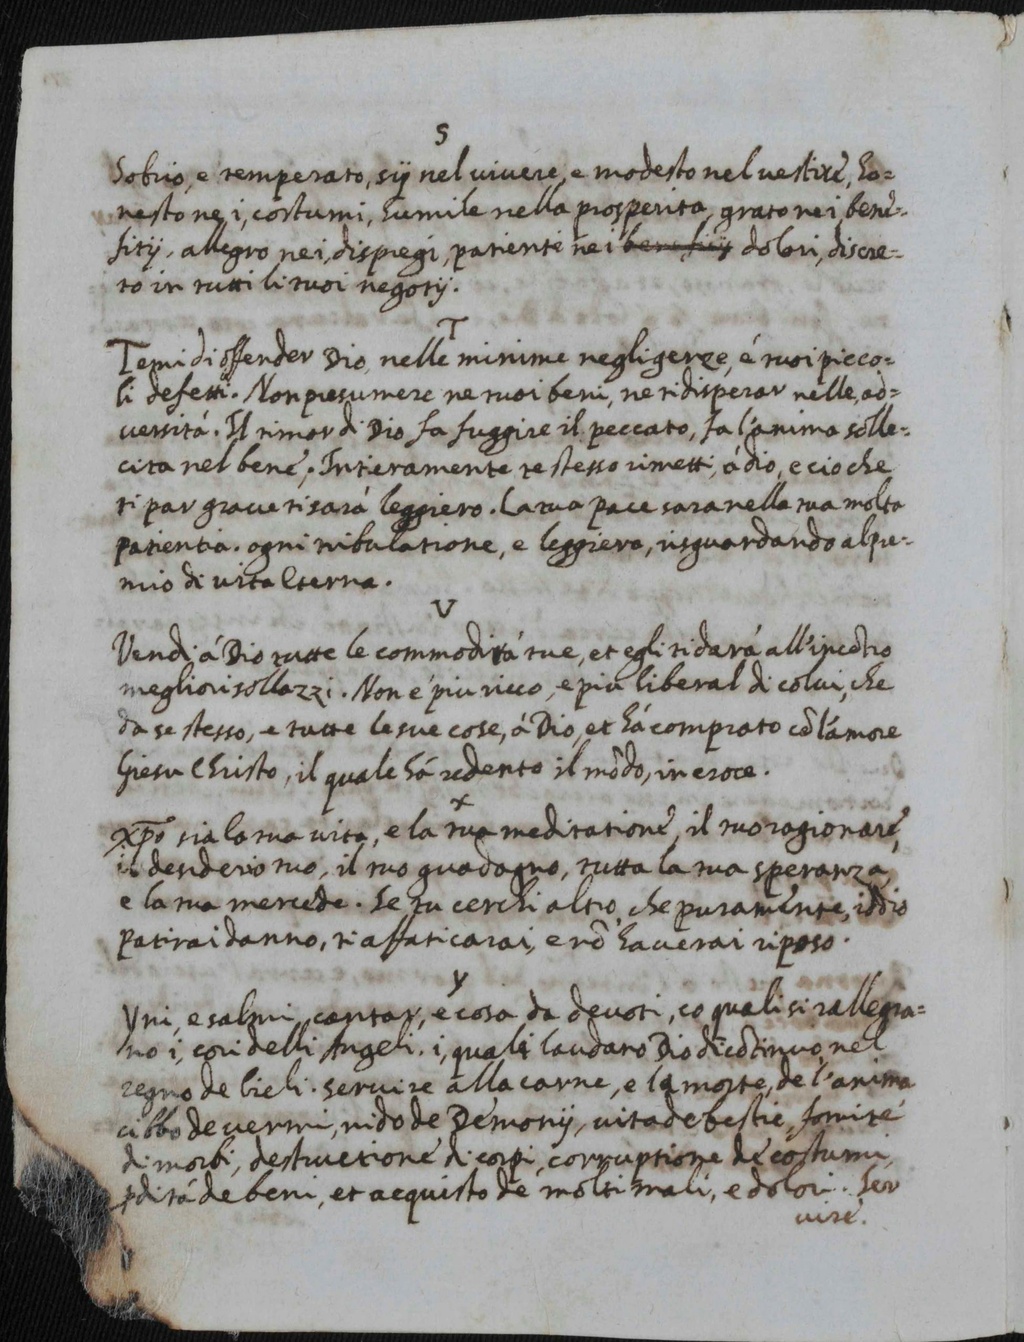 S
Sobrio, e temperato, sij nel uiuere, e modesto nel uestire, ho=
nesto ne i, costumi, humile nella prosperita, grato nei bene=
fitij, allegro nei, dispregi, patiente nei benefitij dolori, discre=
to in tutti li tuoi negotij.
T
Temi di offender Dio, nelle minime negligenze, é tuoi picco=
li defetti. Non presumere ne tuoi beni, ne ti disperar nelle, ad=
uersitá. Il timor di Dio fa fuggire il peccato, fa l'anima solle=
cita nel bene. Intieramente te stesso rimetti, á dio, e cio che
ti par graue ti sará leggiero. La tua pace sara nella tua molta
patientia. ogni tribulatione, e leggiera, risguardando al pre=
mio di uita Eterna.
V
Vendi á Dio tutte le commoditá tue, et egli ti dará all'incõtro
megliori sollazzi. Non é piu ricco, e piu liberal di colui, che
da se stesso, e tutte le sue cose, á Dio, et há comprato cõ l'amore
Giesu Christo, il quale há redento il mõdo, in croce.
X
Xp̃o sia la tua uita, e la tua meditatione, il tuo ragionare,
il desiderio tuo, il tuo guadagno, tutta la tua speranza,
e la tua mercede. Se tu cerchi altro, che puramente, iddio
patirai danno, ti affaticarai, e nõ hauerai riposo.
Y
Yni, e salmi, cantar, e cosa da deuoti, co quali si rallegra=
no i, cori delli Angeli. i, quali laudano Dio di cõtinuo, nel
regno de Cieli. Seruire alla carne, e la morte, de l'anima
cibbo de uermi, nido de Demonij, uita de bestie, fomite
di morbi, destructione di corpi, corruptione de costumi,
pditá de beni, et acquisto de molti mali, e dolori. Ser
uire.